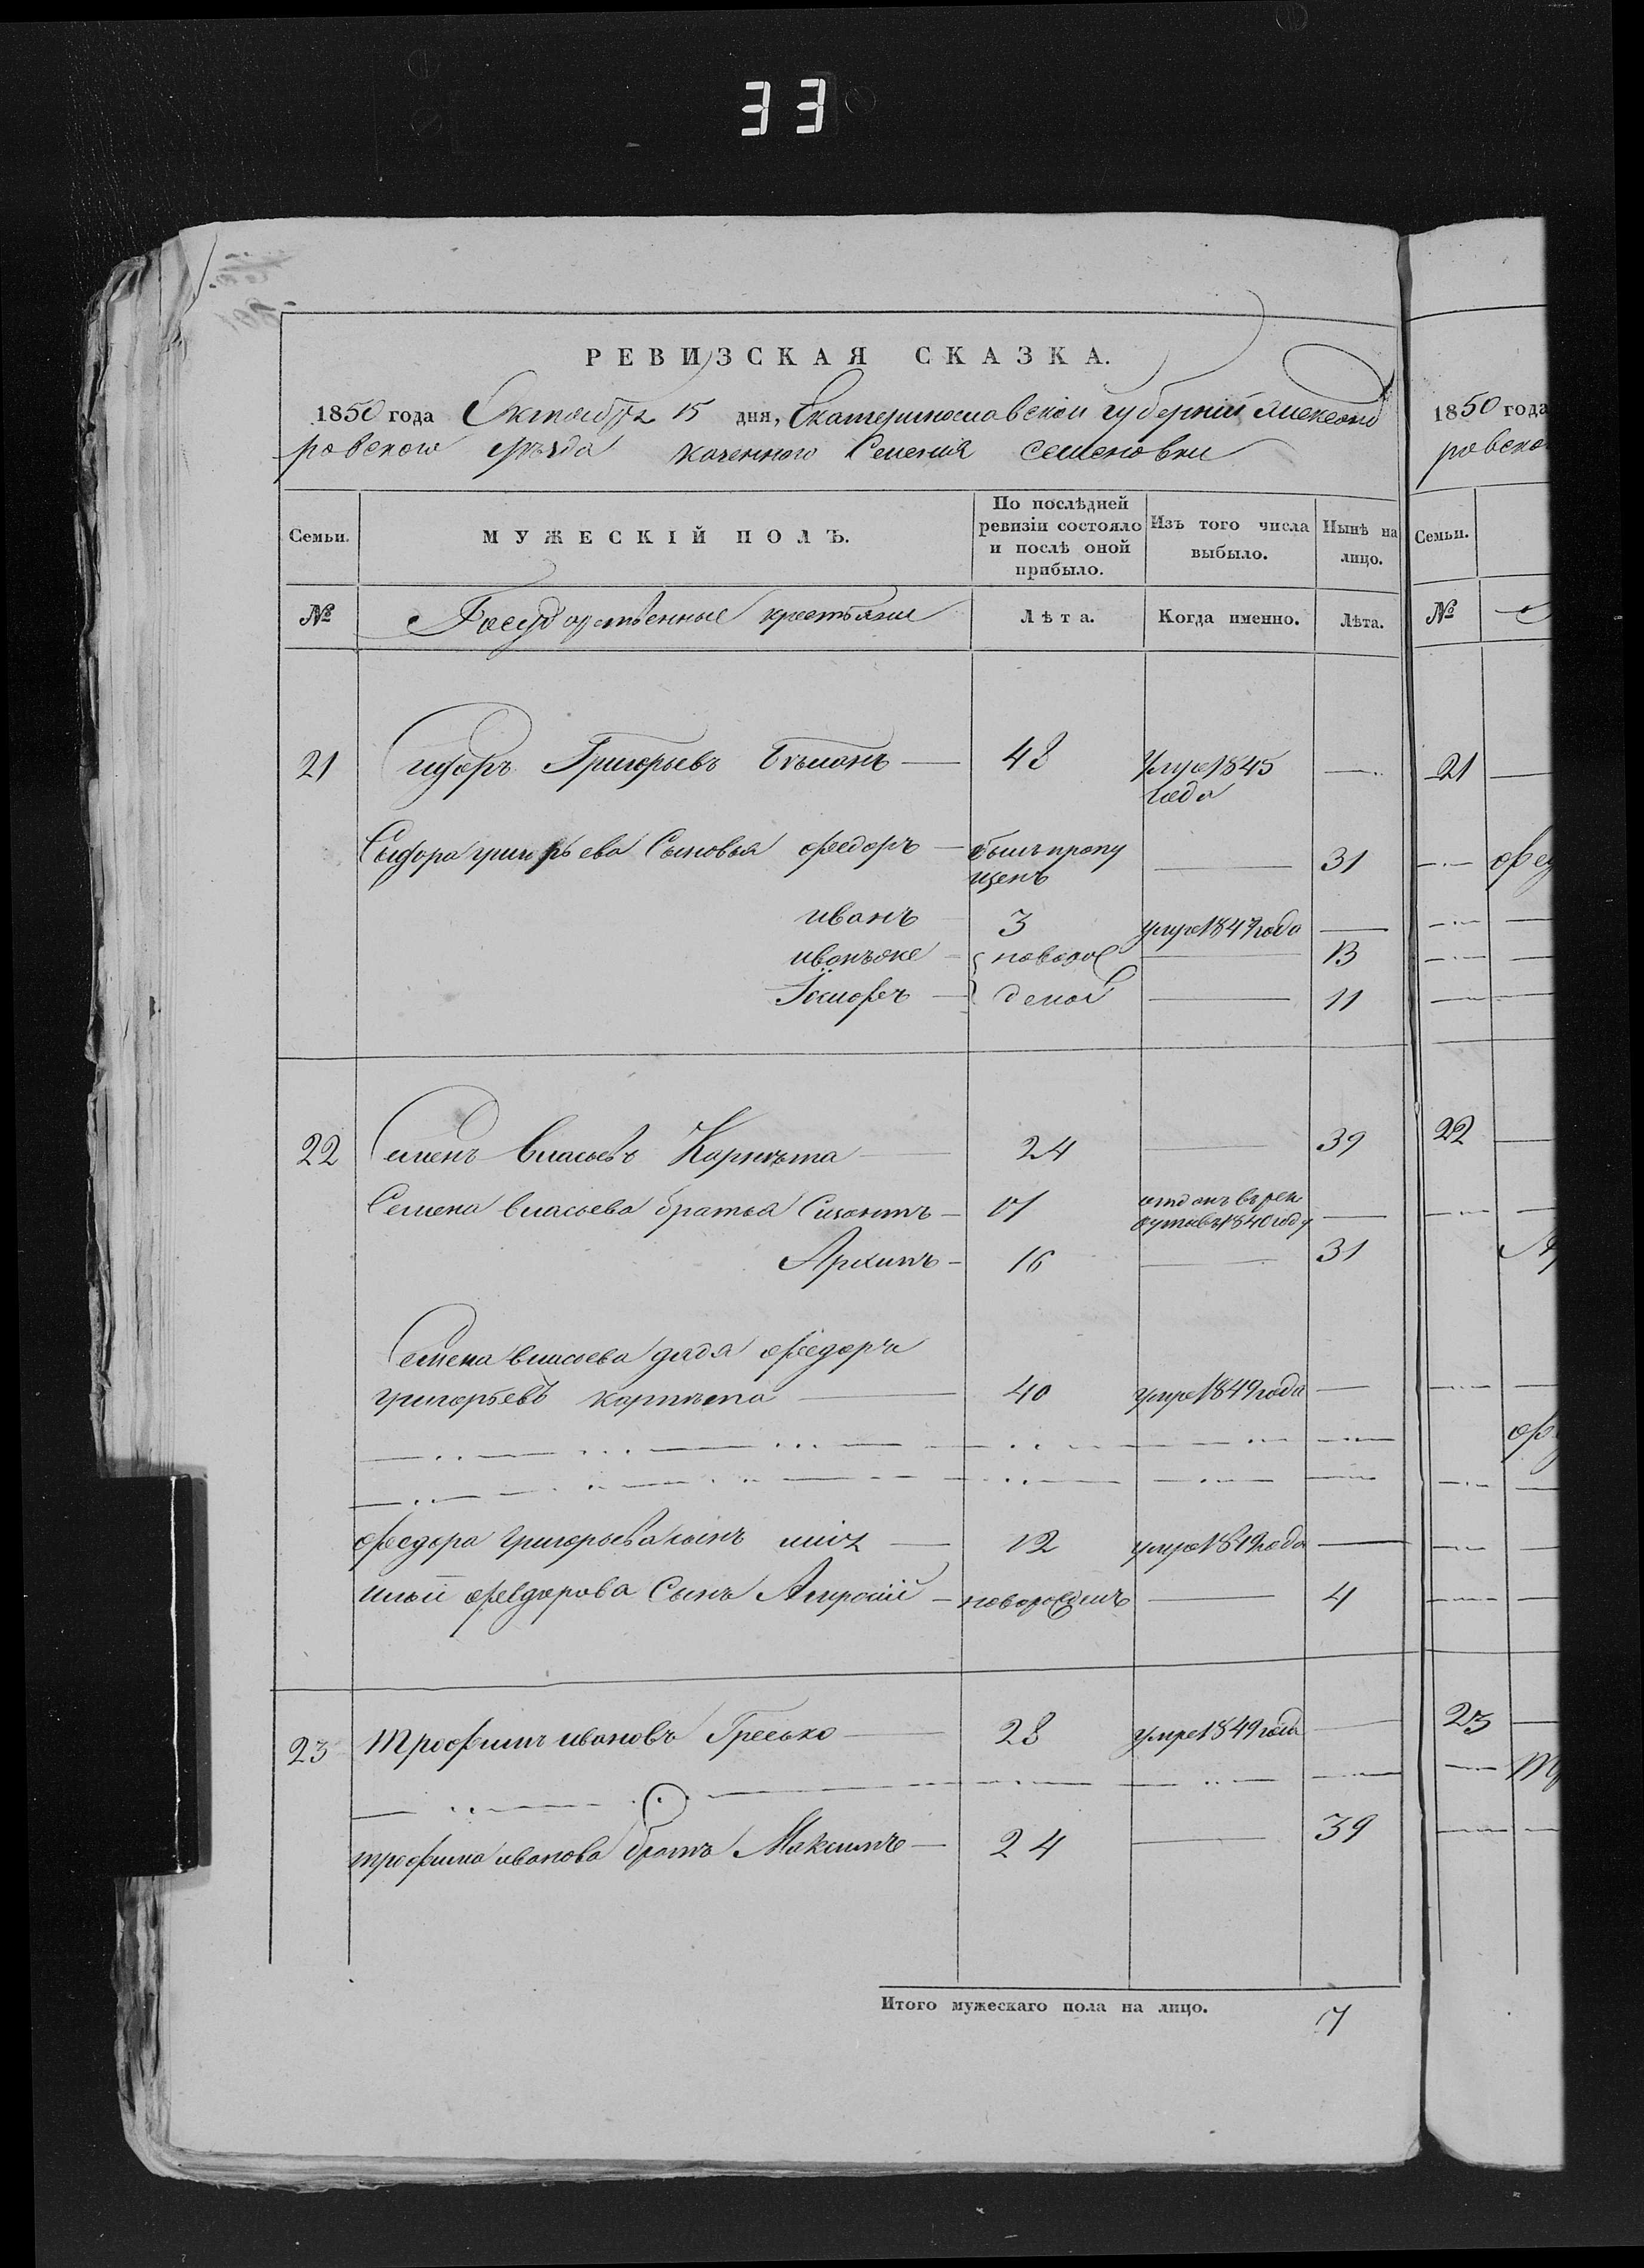 33
РЕВИЗСКАЯ СКАЗКА.
1850 года Октября 15 дня, Екатеринославской губернии Александ
ровского уезда казенного Селения Семеновки
1850 года
ровско
Семьи.
МУЖЕСКІЙ ПОЛЪ.
По послѣдней ревизіи состояло и послѣ оной прибыло.
Изъ того числа выбыло.
Нынѣ на лицо.
Семьи.
№ Государственные крестьяне Лѣта. Когда именно. Лѣта. №
21 Сидоръ Григорьевъ 48 Умре 1845 года — 21
Сидора григорьева Сыновья федоръ — былъ пропу щенъ — 31 фед
иванъ 3 умре 1847 года —
иванъ же новорож — 13
Іосифъ — деной — 11
22 Семенъ Власьевъ 24 — 39 22
Семена власьева братья — 17 отданъ въ рек руты въ 1840 году —
Архипъ — 16 — 31
Семена власьева дядя федоръ
григорьевъ — 40 умре 1849 года —
федора григорьева сынъ — 12 умре 1849 года —
федорова Сынъ — новорожденъ — 4
23 трофимъ ивановъ Гресько — 28 умре 1849 года — 23
трофима иванова братъ Максимъ — 24 — 39
Итого мужескаго пола на лицо. 7